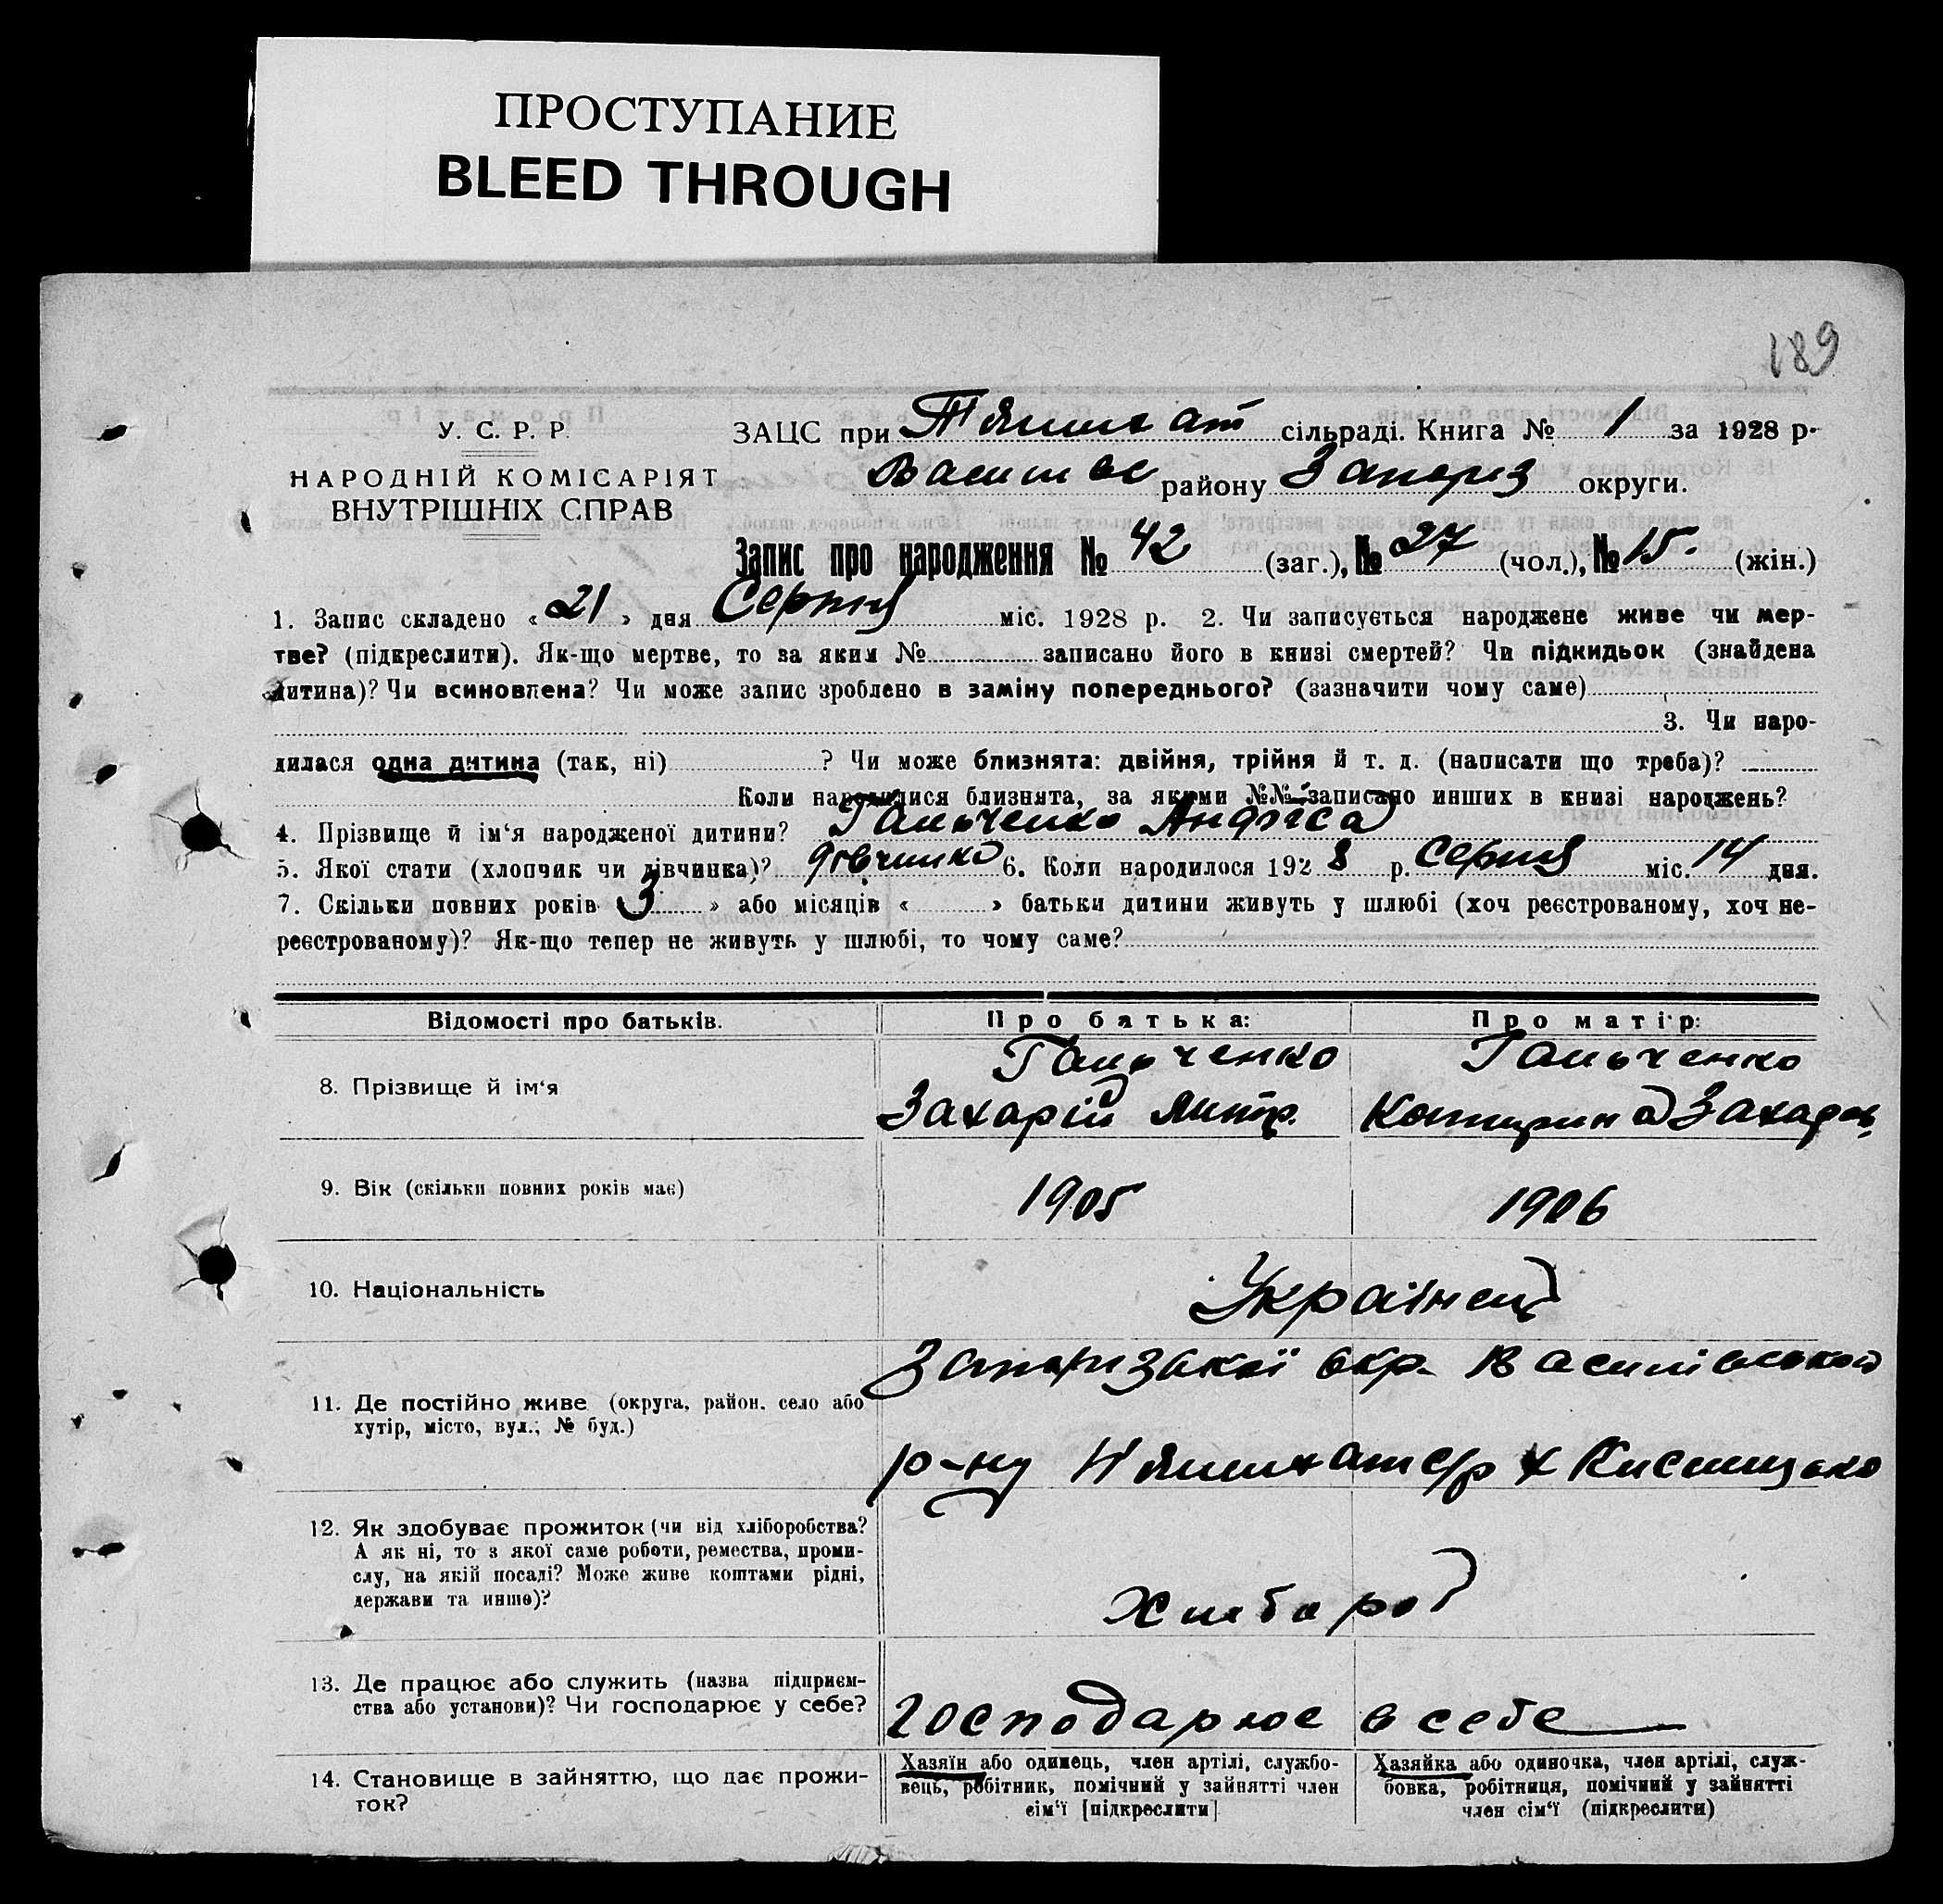 ПРОСТУПАНИЕ
BLEED THROUGH
189
У. С. Р. Р.
НАРОДНІЙ КОМІСАРІЯТ
ВНУТРІШНІХ СПРАВ
ЗАЦС при сільраді. Книга № 1 за 1928 р.
Василівс району Запоріз округи.
Запис про народження № 42 (заг.), № 27 (чол.), № 15. (жін.)
1. Запис складено « 21 » дня Серпня міс. 1928 р. 2. Чи записується народжене живе чи мер-
тве? (підкреслити). Як-що мертве, то за яким № записано його в книзі смертей? Чи підкидьок (знайдена
дитина)? Чи всиновлена? Чи може запис зроблено в заміну попереднього? (зазначити чому саме)
3. Чи наро-
дилася одна дитина (так, ні) ? Чи може близнята: двійня, трійня й т. д. (написати що треба)?
Коли народилися близнята, за якими №№ записано инших в книзі народжень?
4. Прізвище й ім‘я народженої дитини? Гальченко
5. Якої стати (хлопчик чи дівчинка)? дівчинка 6. Коли народилося 1928 р. Серпня міс. 14 дня.
7. Скільки повних років 3 » або місяців « » батьки дитини живуть у шлюбі (хоч реєстрованому, хоч не-
реєстрованому)? Як-що тепер не живуть у шлюбі, то чому саме?
Відомості про батьків. Про батька: Про матір:
Гальченко Гальченко
8. Прізвище й ім‘я
Захарій Катерина Захаров
9. Вік (скільки повних років має) 1905 1906
10. Національність Українец
Запорізької окр. Василівського
11. Де постійно живе (округа, район, село або
хутір, місто, вул., № буд.)
р-ну с/р х
12. Як здобуває прожиток (чи від хліборобства?
А як ні, то з якої саме роботи, ремества, проми-
слу, на якій посаді? Може живе коштами рідні,
держави та инше)?
Хлібороб
13. Де працює або служить (назва підприєм-
ства або установи)? Чи господарює у себе?
Господарює в себе
14. Становище в зайняттю, що дає прожи-
ток?
Хазяїн або одинець, член артілі, службо-
вець, робітник, помічний у зайнятті член
сім‘ї [підкреслити]
Хазяйка або одиночка, член артілі, служ-
бовка, робітниця, помічний у зайнятті
член сім‘ї (підкреслити)